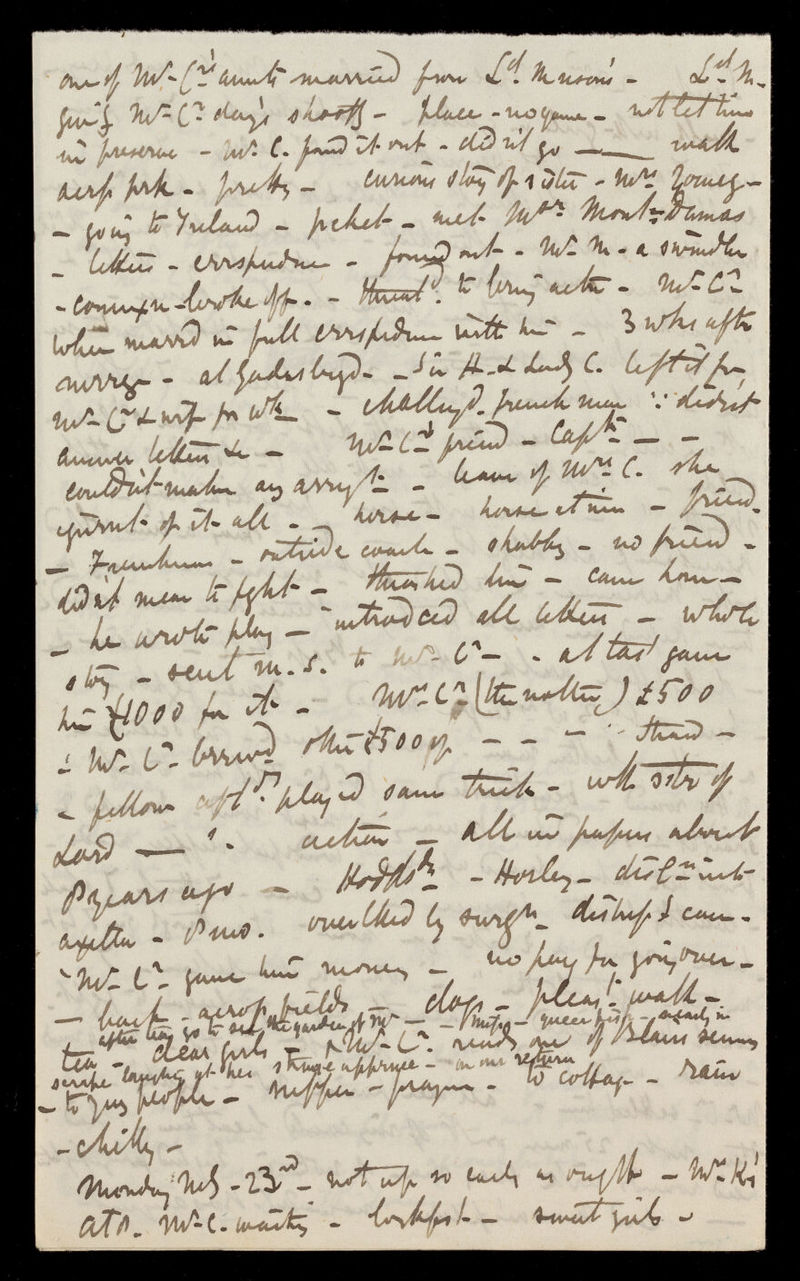 one of Mr. Cr's aunts married from Ld. Munson's - Ld. M-
giv'g Mr. Cr. day's shootg - place - no game - not let him
in preserve - Mr. C. found it out - didn't go - walk
across prk - pretty - curious stoy of sister - Mrs
- going to Ireland - pcket - met Monsr. Dumas
- letters - corrspndnce - found out - Mr. M - a swindler
- connexn broke off. - threatd. to bring actn - Mr. Cr.
when marrd in full corrspndnce with him - 3 wks aftr
mrrge - at - Sir H. & Lady C. left it for
Mr. Cr. & wife for wk - challng'd. french man ∵ didn't
answer letters &c - Mr. Cr's friend - Captn -
couldn't make any arrngt. - leave of Mrs. C. she
ignrnt of it all - horse - horse at inn - friend.
- Frenchman - outside coach - shabby - no friend -
didn't mean to fght - thrashed him - came home -
- he wrote play - introdced all letters - whole
stoy - sent m.s. to Mr. Cr. - at last gave
him £1000 for it - Mrs. Cr. (the mother) £500
& Mr. Cr. borrwd other £500 of - - -
- fellow aftds. played same trick - wth sstr of
Lord — 's. action - all in papers about
8 years ago - - Horley - disln. into
axilla - 8 mo. ovrlked by surgn.
Mr. Cr. gave him money - no pay for going over -
- back - across fields - dogs - pleast. walk -
after tea go to see the garden of Mr. - queer - nearly in
tea - dear girls - & Mr. Cr. reads one of Blairs sermns
scrape laughing at her strange apprnce - on our return
- to yng people - supper - prayrs - to cottage - rain
- chilly -
Monday Mg - 23rd - not up so early as ought - Mrs. K's
at 8. Mr. C. waiting - brkfst - sweet girls -